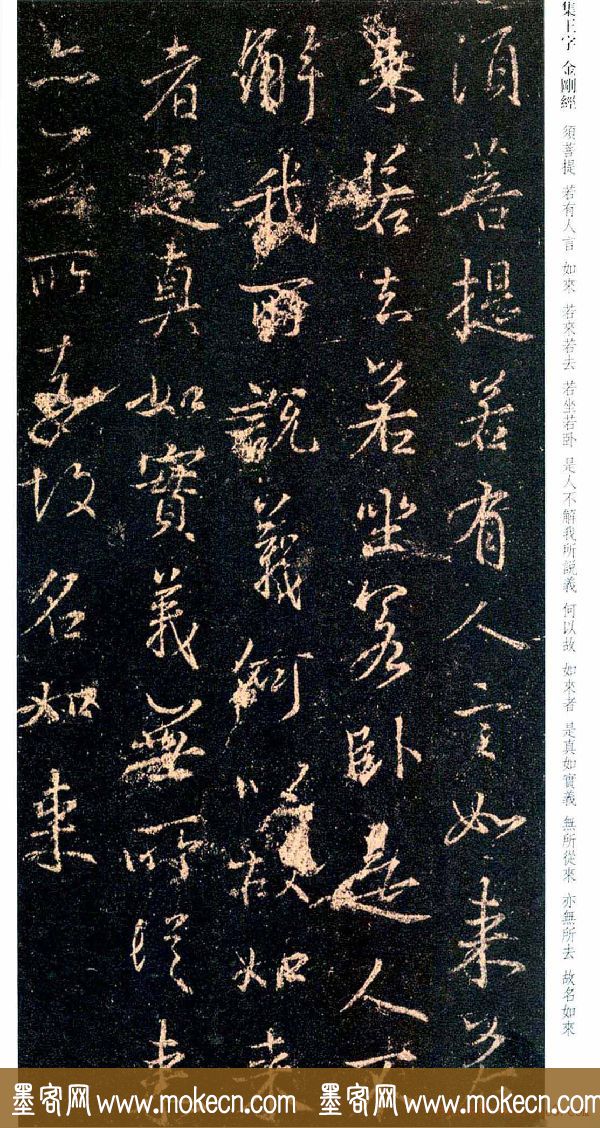 集王字 金剛經 須菩提 若有人言 如來 若來若去 若坐若卧 是人不解我所説義 何以故 如來者 是真如實義 無所從來 亦無所去 故名如來
須菩提若有人言如来若
来若去若坐若卧是人不
解我所說義何以故如来
者是真如實義無所從来
亦無所去故名如来
墨客网 www.mokecn.com 墨客网 www.mokecn.com